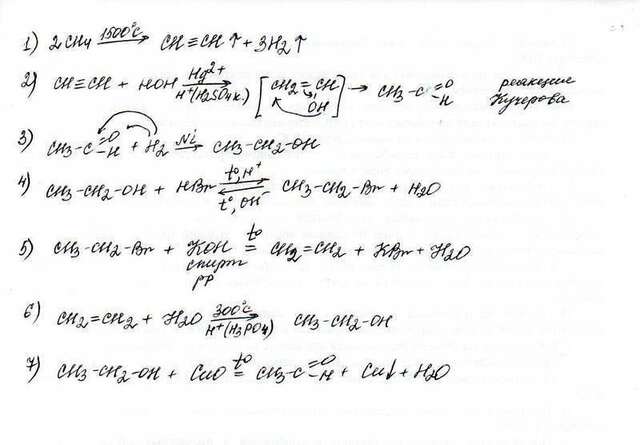 1) 2CH4 1500°C → CH≡CH↑ + 3H2↑
2) CH≡CH + HOH Hg2+ → H+(H2SO4к.) [CH2=CH OH] → CH3-C=O H реакция Кучерова
3) CH3-C=O H + H2 Ni → CH3-CH2-OH
4) CH3-CH2-OH + HBr t°, H+ ⇄ t°, OH- CH3-CH2-Br + H2O
5) CH3-CH2-Br + KOH t° = CH2=CH2 + KBr + H2O
спирт
рр
6) CH2=CH2 + H2O 300°C → H+(H3PO4) CH3-CH2-OH
7) CH3-CH2-OH + CuO t° = CH3-C=O H + Cu↓ + H2O